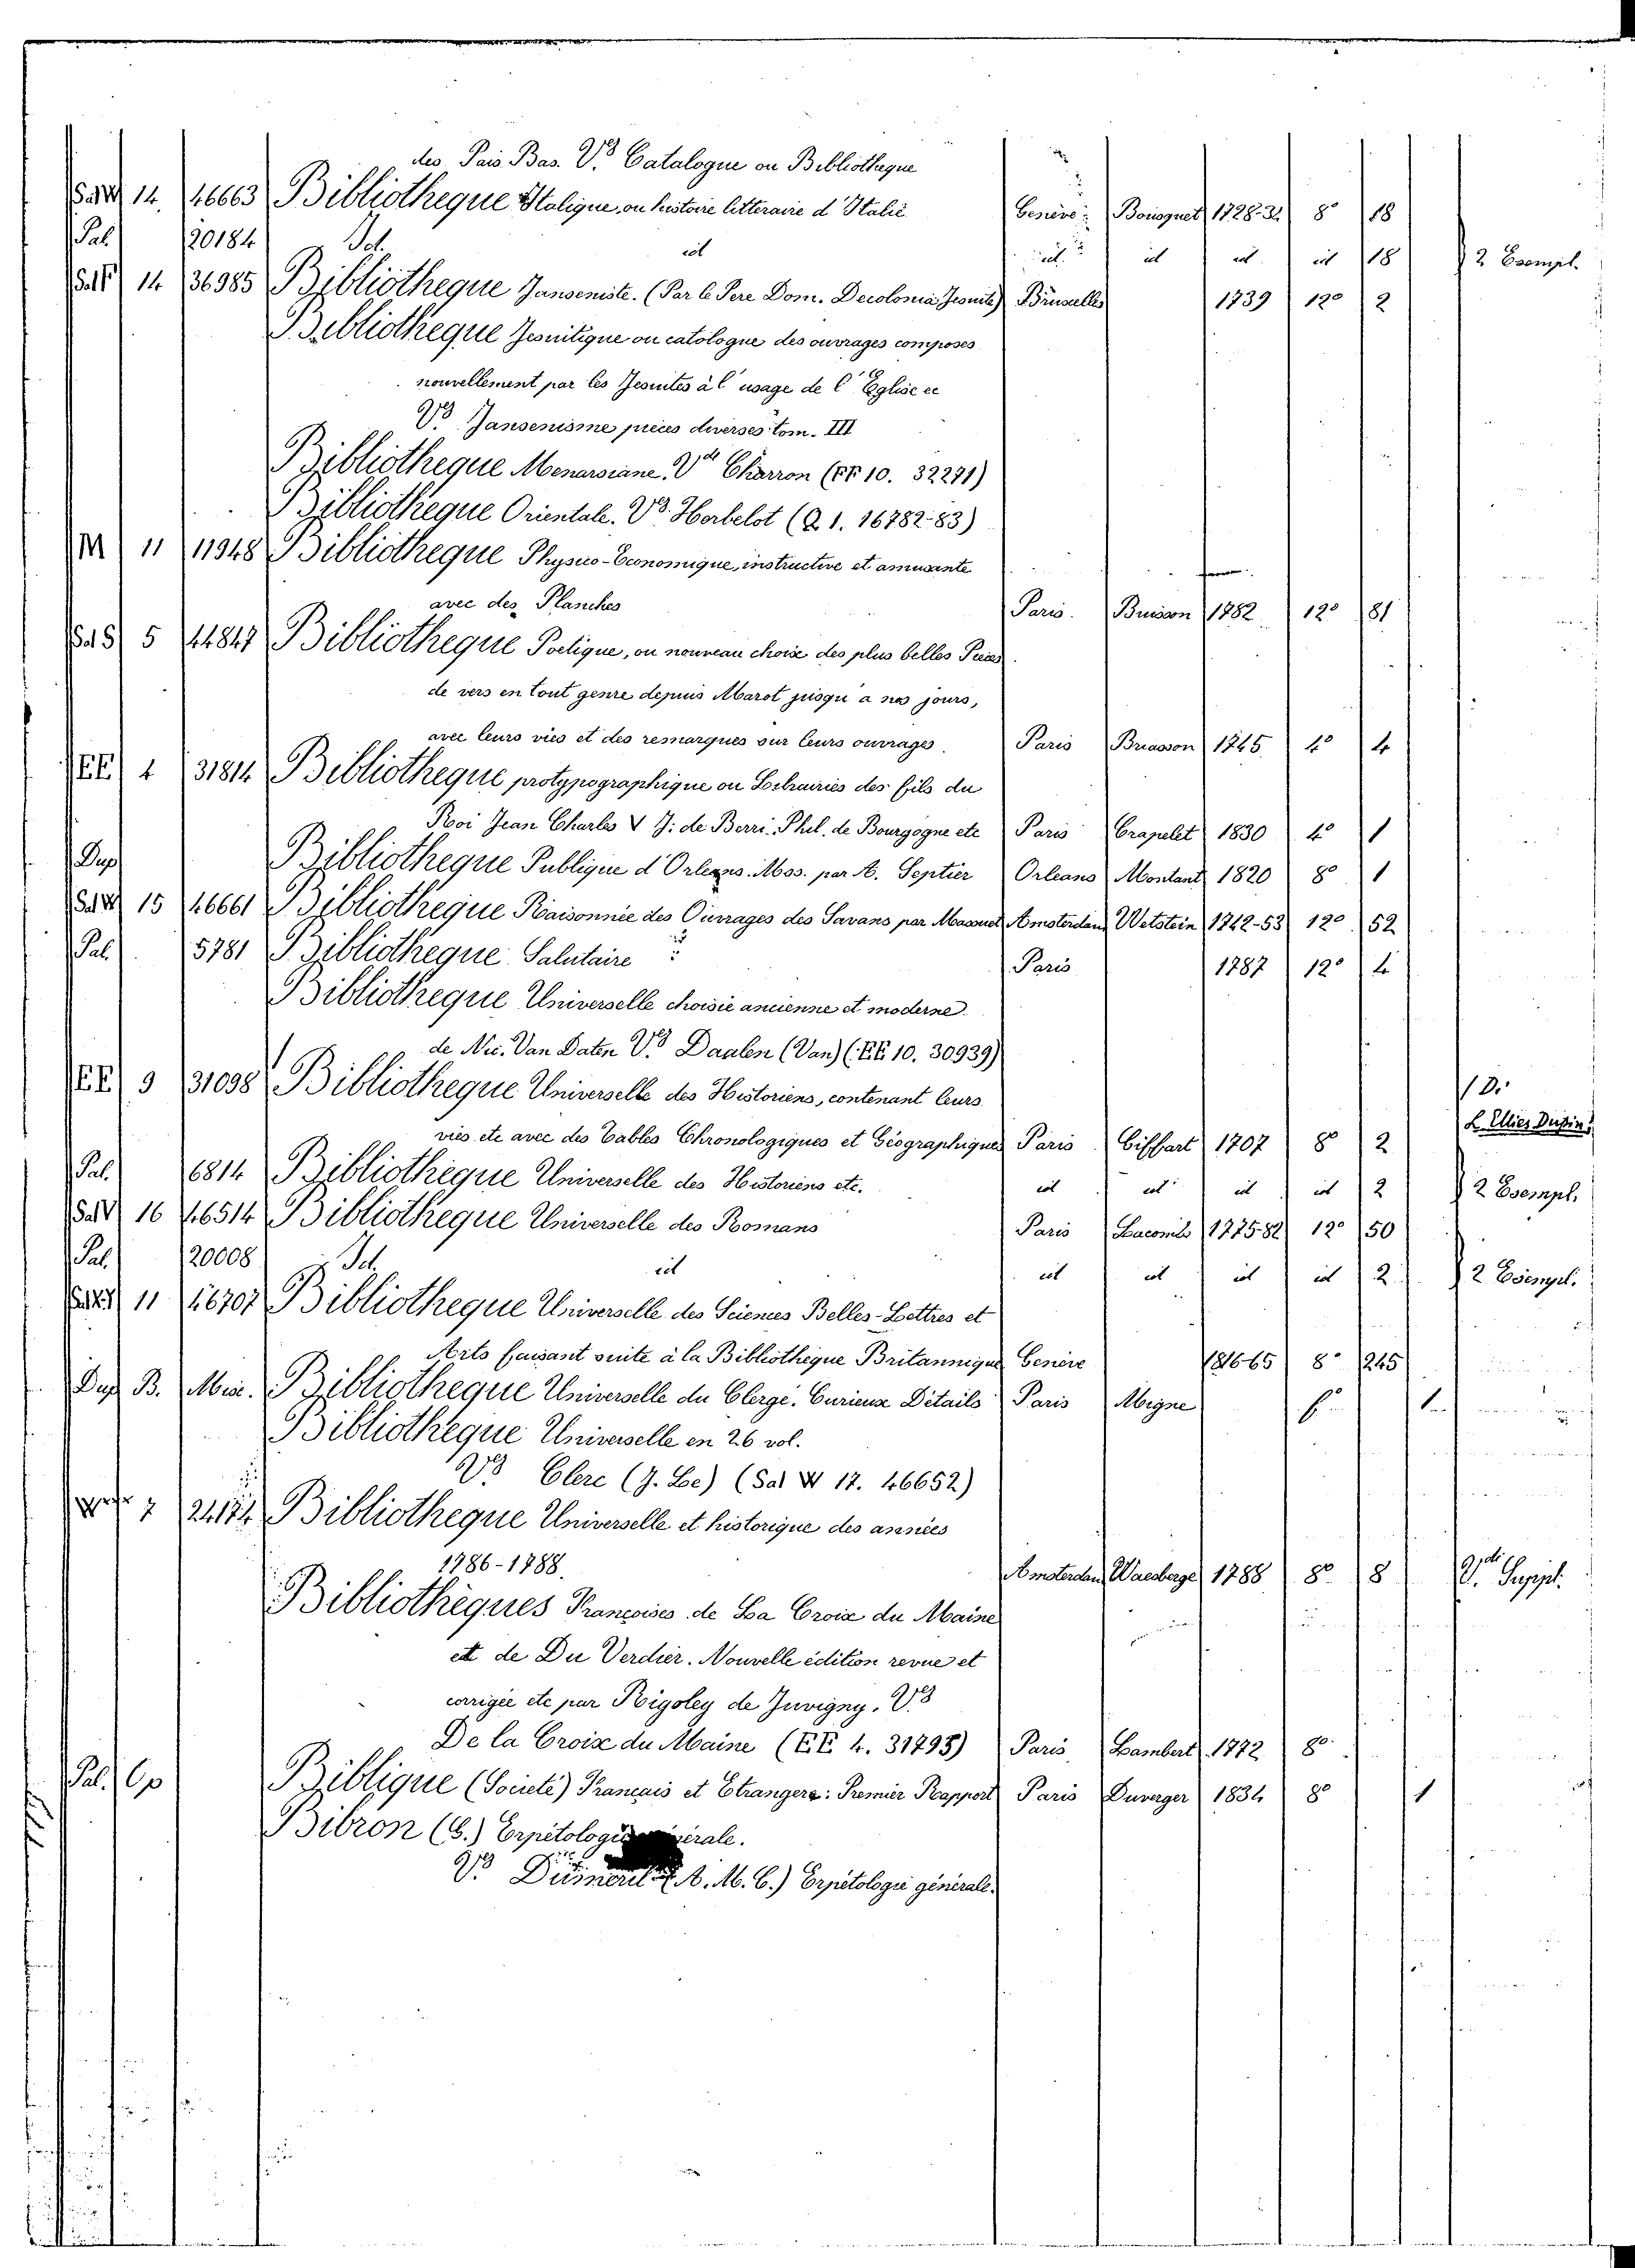 des Pais Bas. V.ß Catalogue ou Bibliotheque
14. 46663 Bibliotheque Italique, ou histoire litteraire d'Italie Genève Bousquet 1728-34 8° 18
Pal. 20184 Id. id id id id id 18 2 Esempl.
14 36985 Bibliotheque Janseniste. (Par le Pere Dom. Decolonia Jesuite) Bruxelles 1739 12° 2
Bibliotheque Jesuitique ou catologue des ouvrages composes
nouvellement par les Jesuites à l'usage de l'Eglise ec
V.ß Jansenisme pièces diverses tom. III
Bibliotheque Menarsiane. V.di Charron (FF 10. 32271)
Bibliotheque Orientale. V.ß Herbelot (Q 1. 16782-83)
M 11 11948 Bibliotheque Physico-Economique, instructive et amusante
avec des Planches Paris. Buisson 1782 12° 81
Sal S 5 44847 Bibliotheque Poetique, ou nouveau choix des plus belles Pieces
de vers en tout genre depuis Marot jusqu'a nos jours,
avec leurs vies et des remarques sur leurs ouvrages. Paris Briasson 1745 4° 4
EE 4 31814 Bibliotheque protypographique ou Librairies des fils du
Roi Jean Charles V J: de Berri, Phil. de Bourgogne etc Paris Crapelet 1830 4° 1
Dup Bibliotheque Publique d'Orleans. Mss. par A. Septier Orleans Montant 1820 8° 1
Sal W 15 46661 Bibliotheque Raisonnée des Ouvrages des Savans par Massuet Amsterdam Wetstein 1742-53 12° 52
Pal. 5781 Bibliotheque Salutaire Paris 1787 12° 4
Bibliotheque Universelle choisie ancienne et moderne
de Nic. Van Daten V.ß Daalen (Van) (EE 10. 30939)
EE 9 31098 Bibliotheque Universelle des Historiens, contenant leurs D.
vies etc avec des Tables Chronologiques et Géographiques Paris Giffart 1707 8° 2 L. Ellies Dupin
Pal. 6814 Bibliothèque Universelle des Historiens etc. id id id id 2 2 Esempl.
Sal V 16 46514 Bibliotheque Universelle des Romans Paris Lacombe 1775-82 12° 50
Pal. 20008 Id. id id id id id 2 2 Esempl.
11 46707 Bibliotheque Universelle des Sciences Belles-Lettres et
Arts faisant suite à la Bibliothèque Britannique Genève 1816-65 8° 245
Dup B. Misc. Bibliotheque Universelle du Clergé. Curieux Détails Paris Migne f° 1
Bibliotheque Universelle en 26 vol.
V.ß Clerc (J. Le) (Sal W 17. 46652)
7 24174 Bibliotheque Universelle et historique des années
1786-1788. Amsterdam Waesberge 1788 8° 8 V.di Suppl.
Bibliothèques Françoises de La Croix du Maine
et de Du Verdier. Nouvelle édition revue et
corrigée etc par Rigoley de Juvigny. V.ß
De la Croix du Maine (EE 4. 31793) Paris Lambert 1772 8°
Pal. Op Biblique (Societé) Français et Etrangere: Premier Rapport Paris Duverger 1834 8° 1
Bibron (G.) Erpétologie générale.
V.ß Duméril (A. M. C.) Erpétologie générale.